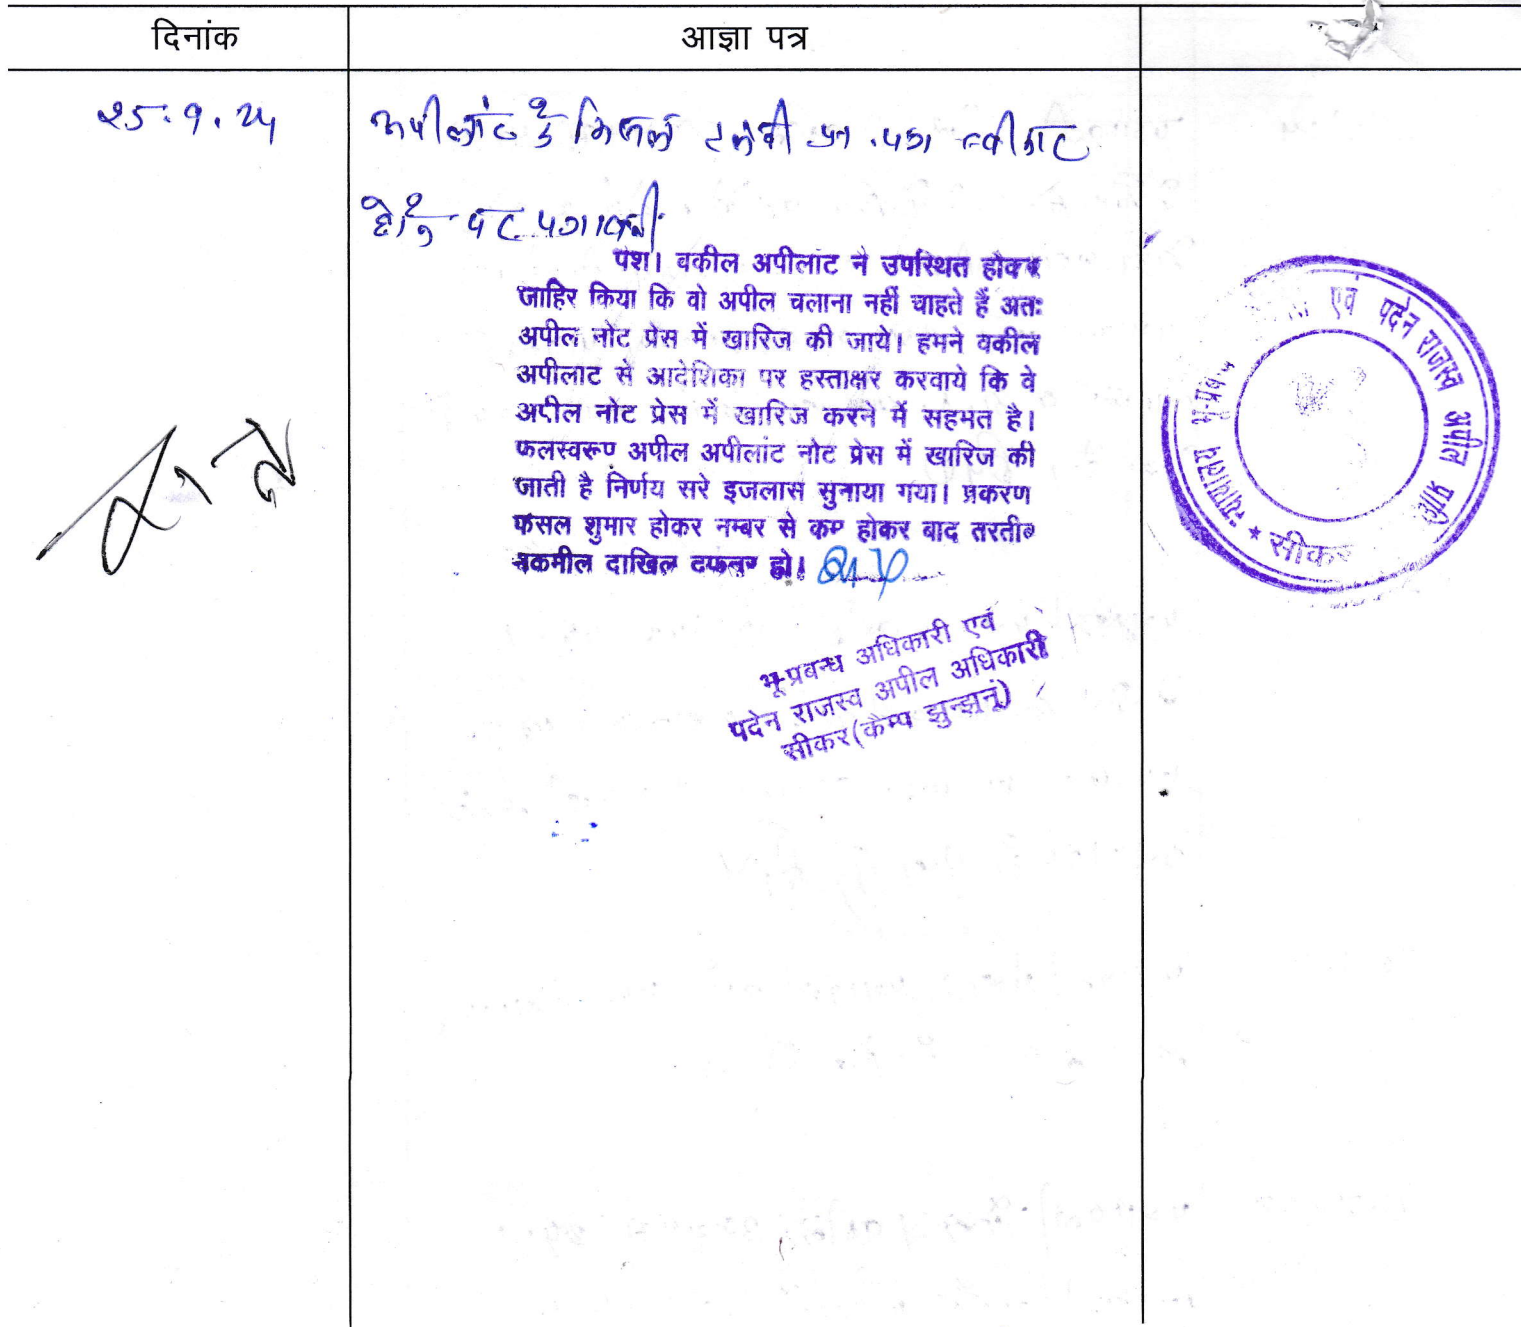 दिनांक
आज्ञा पत्र
25.9.24
अपीलांट के
होने पर पत्रावली
पेश। वकील अपीलांट ने उपस्थित होकर
जाहिर किया कि वो अपील चलाना नहीं चाहते हैं अतः
अपील नोट प्रेस में खारिज की जाये। हमने वकील
अपीलाट से आदेशिका पर हस्ताक्षर करवाये कि वे
अपील नोट प्रेस में खारिज करने में सहमत है।
फलस्वरूप अपील अपीलांट नोट प्रेस में खारिज की
जाती है निर्णय सरे इजलास सुनाया गया। प्रकरण
फैसल शुमार होकर नम्बर से कम होकर बाद तरतीब
तकमील दाखिल दफ्तर हो।
भू-प्रबन्ध अधिकारी एवं
पदेन राजस्व अपील अधिकारी
सीकर(कैम्प झुन्झुनूं)
न्यायालय भू-प्रब एवं पदेन राजस्व अपील प्राधि
★ सीकर